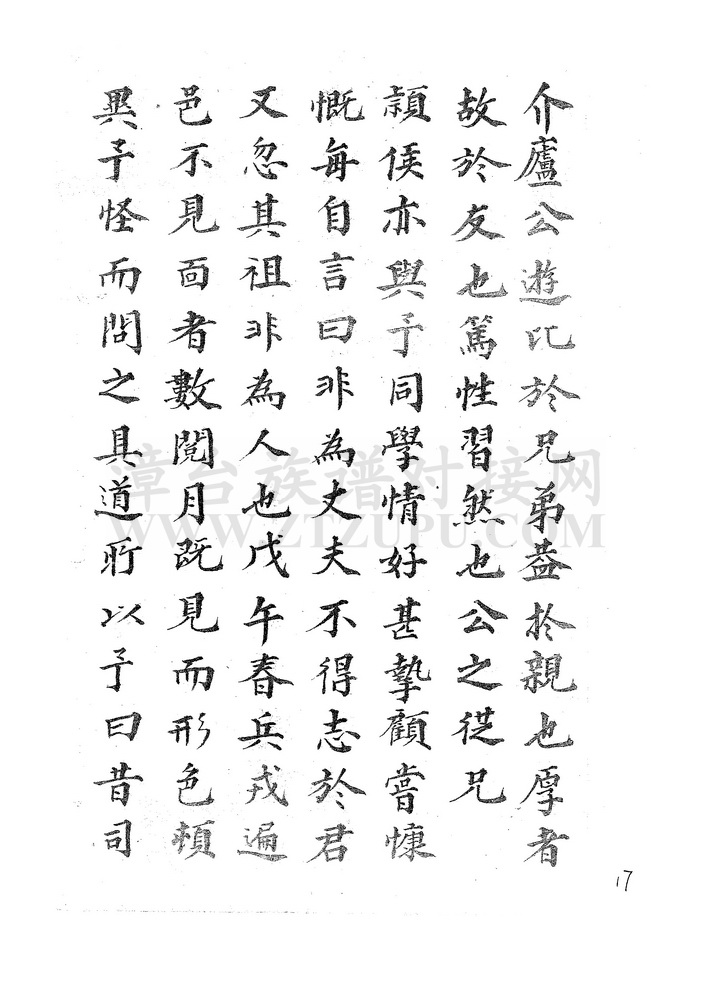 介廬公遊比於兄弟益於親也厚者
故於友也篤性習然也公之従兄
頴侯亦與予同學情好甚摯顧嘗慷
慨每自言曰非為丈夫不得志於君
又忽其祖非為人也戊午春兵戎遍
邑不見面者數閱月既見而形色頓
異予怪而問之具道所以予曰昔司
漳台族谱对接网
WWW.ZTZUPU.COM
17